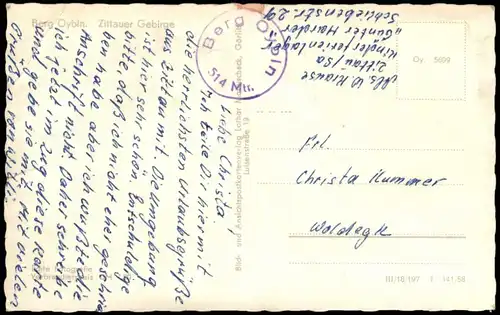 Berg Oybin. Zittauer Gebirge
Berg Oybin
514 Mtr.
Abs. W. Krause
Zittau/Sa
Kinderferienlager
"Günter Harder"
Schliebenstr. 29
Oy 5609
Liebe Christa,
Ich teile Dir hiermit
die herrlichsten Urlaubsgrüße
aus Zittau mit. Die Umgebung
ist hier sehr schön. Entschuldige
bitte, daß ich nicht eher geschrie
ben habe aber ich wußte die
Anschrift nicht. Daher schreibe
ich jetzt im Zug diese Karte
und gebe sie mit. Mit vielen
Grüßen von Willi.
Bild- und Ansichtspostkartenverlag Lothar
Görlitz
Luisenstraße 19
Frl.
Christa Kummer
Woldegk
Echte Fotografie
III/18/197 1 141/58